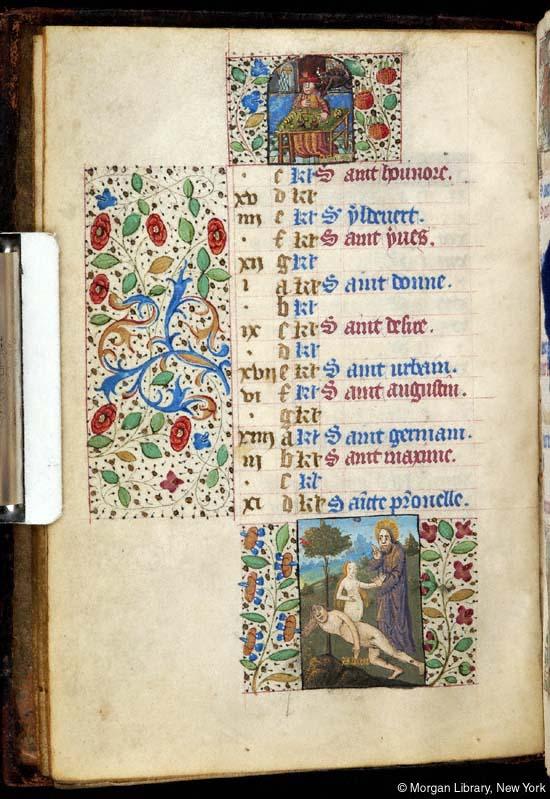 · c kl S aint hounore.
xv d kl
iiii e kl S' yldevert.
· f kl S aint yves.
xii g kl
i a kl S aint donne.
· b kl
ix c kl S aint desire.
· d kl
xvii e kl S aint urbain.
vi f kl S aint augustin.
· g kl
xiiii a kl S aint germain.
iii b kl S aint maxime.
· c kl
xi d kl S aīcte pronelle.
© Morgan Library, New York